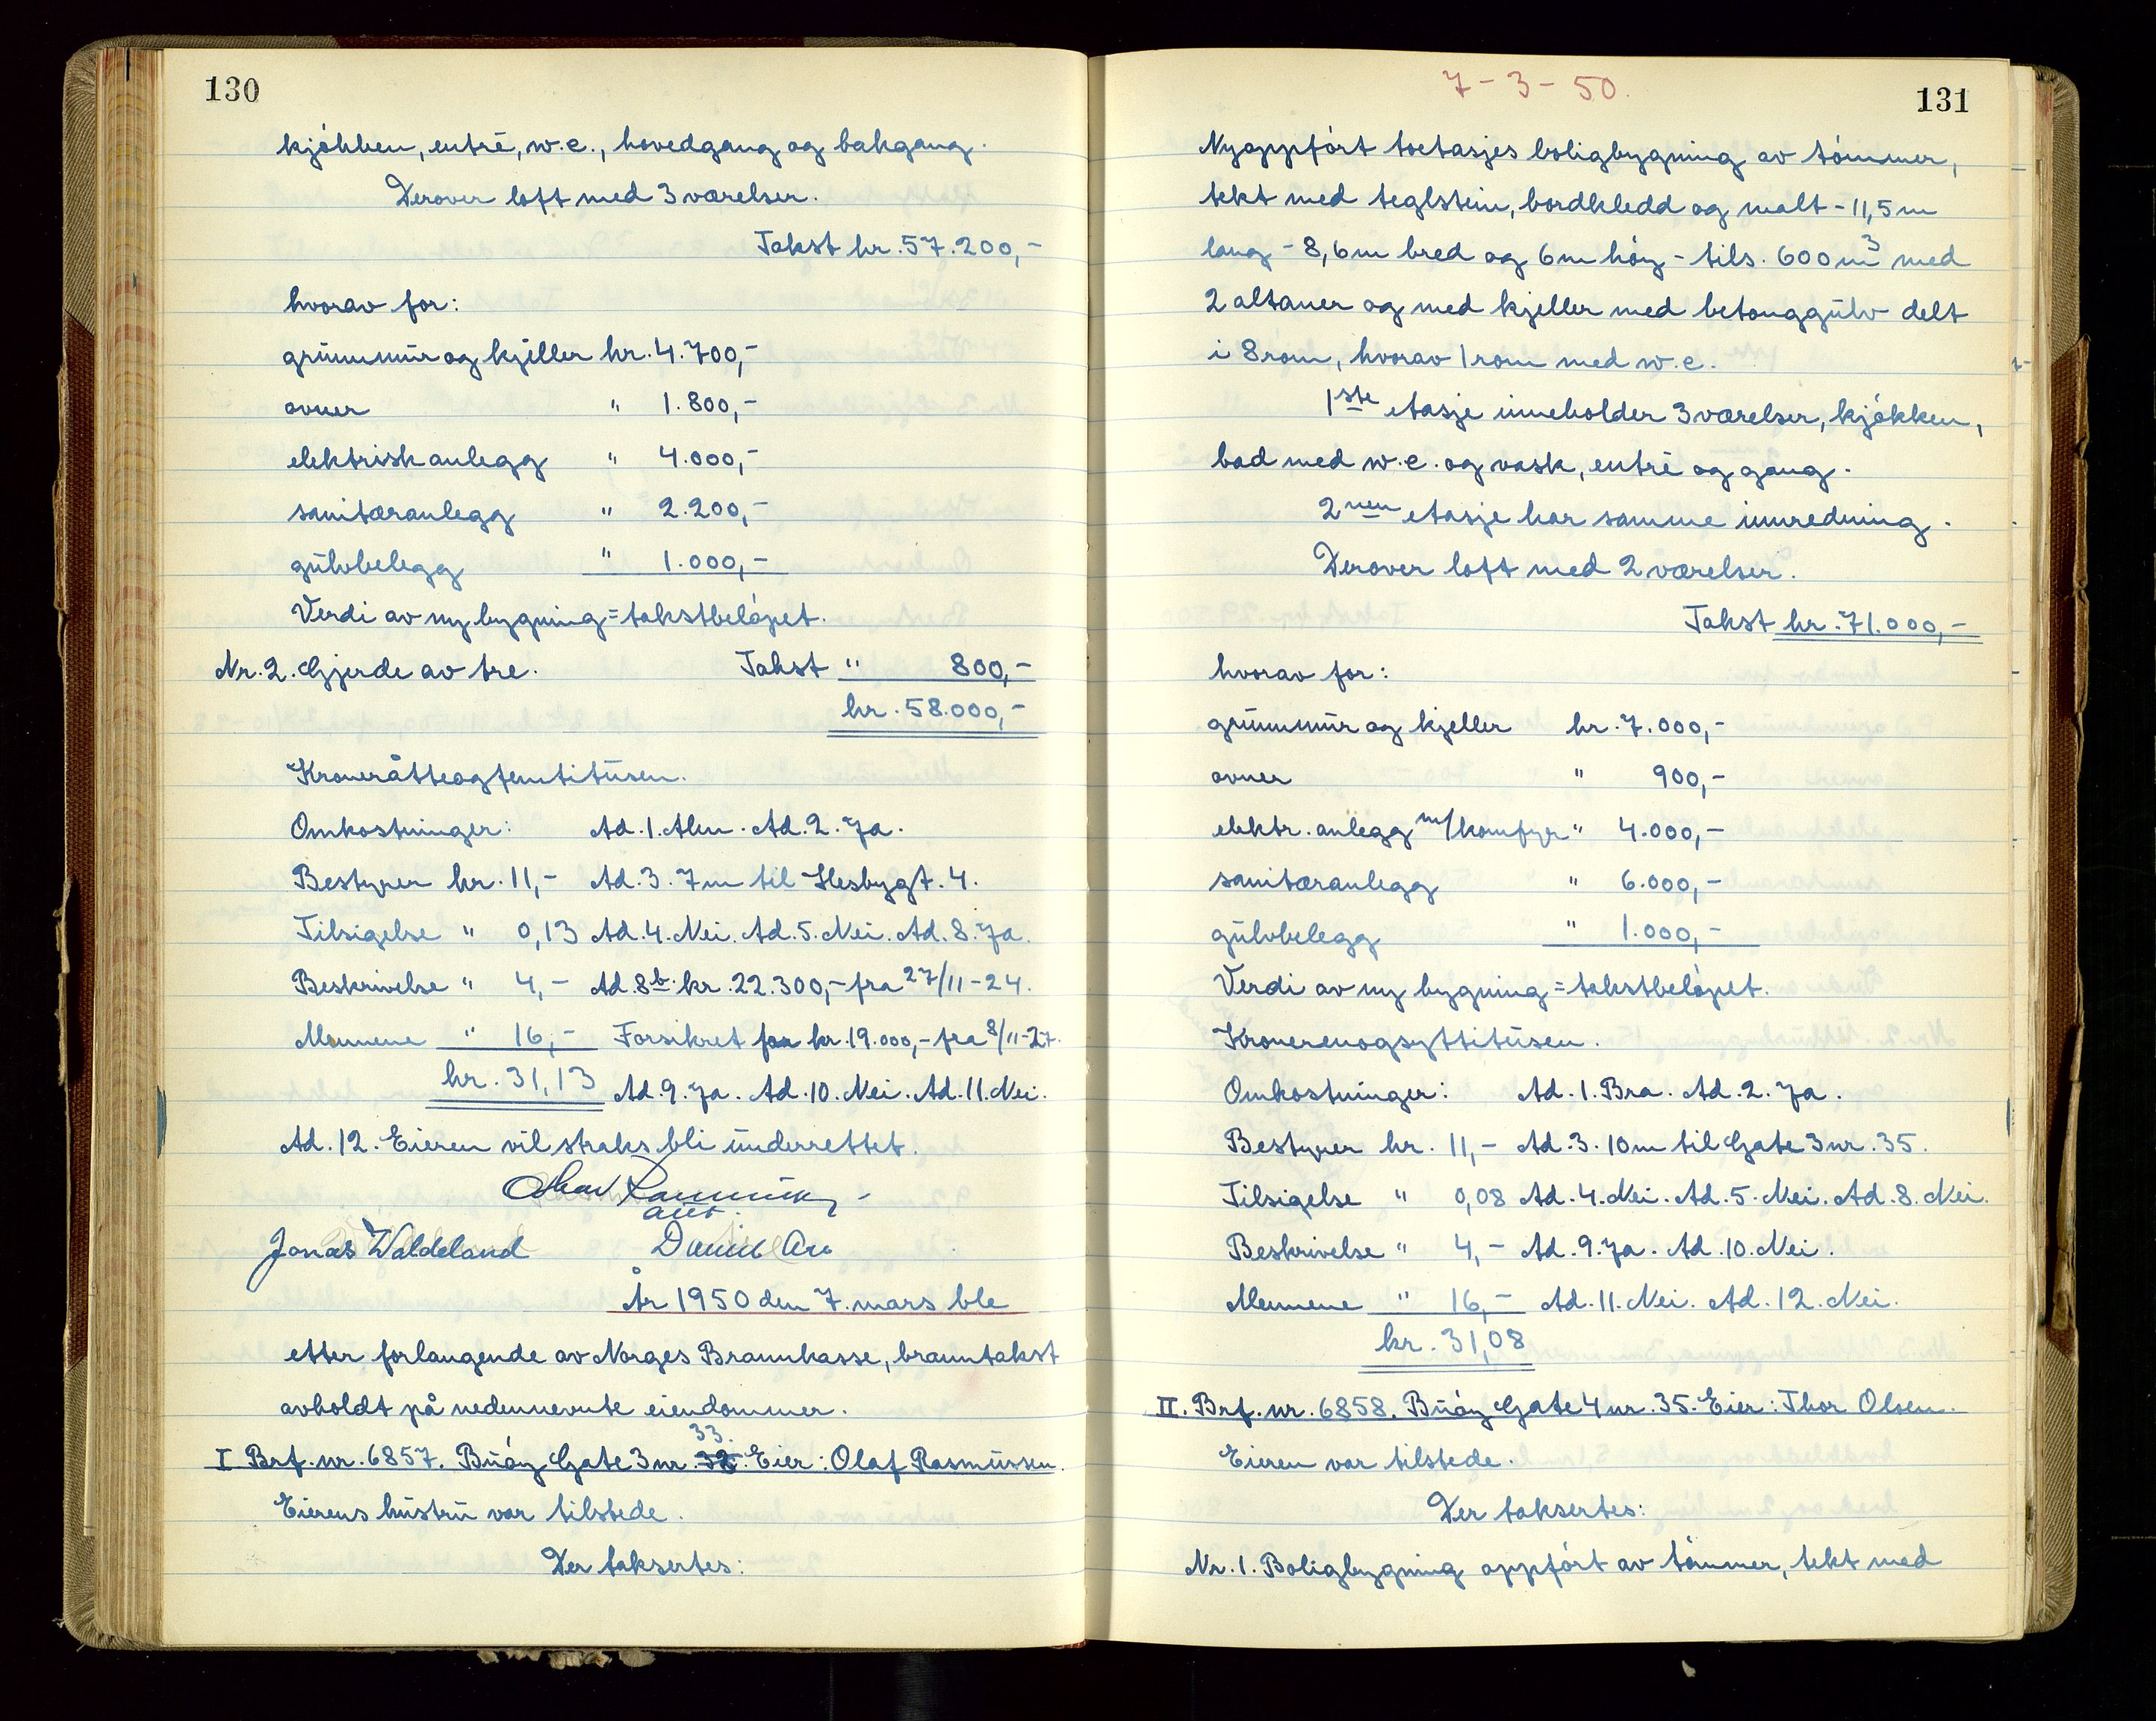 130
kjøkken, entré, w.c., hovedgang og bakgang.
Derover loft med 3 værelser.
Takst kr. 57.200,-
hvorav for:
grunnmur og kjeller kr. 4.700,-
ovner " 1.800,-
elektrisk anlegg " 4.000,-
sanitæranlegg " 2.200,-
gulvbelegg " 1.000,-
Verdi av ny bygning = takstbeløpet.
Nr. 2. Gjerde av tre. Takst " 800,-
kr. 58.000,-
Kroneråtteogfemtitusen.
Omkostninger: Ad. 1. Alm. Ad. 2. Ja.
Bestyrer kr. 11,- Ad. 3. 7 m til Hesbygt. 4.
Tilsigelse " 0,13 Ad. 4. Nei. Ad. 5. Nei. Ad. 8. Ja.
Beskrivelse " 4,- Ad. 8b. kr. 22.300,- fra 27/11-24.
Mennene " 16,- Forsikret for kr. 19.000,- fra 8/11-27.
kr. 31,13 Ad. 9. Ja. Ad. 10. Nei. Ad. 11. Nei.
Ad. 12. Eieren vil straks bli underrettet.
Jonas Waldeland
År 1950 den 7. mars ble
etter forlangende av Norges Brannkasse, branntakst
avholdt på nedennevnte eiendommer.
33.
I Brf. nr. 6857. Buøy Gate 3 nr. 32. Eier: Olaf Rasmussen.
Eierens hustru var tilstede.
Der taksertes:
7-3-50.
131
Nyoppført toetasjes boligbygning av tømmer,
tekt med teglstein, bordkledd og malt - 11,5 m
lang - 8,6 m bred og 6 m høy - tils. 600 m3 med
2 altaner og med kjeller med betonggulv delt
i 8 rom, hvorav 1 rom med w.c.
1ste etasje inneholder 3 værelser, kjøkken,
bad med w.c. og vask, entré og gang.
2nen etasje har samme innredning.
Derover loft med 2 værelser.
Takst kr. 71.000,-
hvorav for:
grunnmur og kjeller kr. 7.000,-
ovner " 900,-
elektr. anlegg m/komfyr " 4.000,-
sanitæranlegg " 6.000,-
gulvbelegg " 1.000,-
Verdi av ny bygning = takstbeløpet.
Kronerenogsyttitusen.
Omkostninger: Ad. 1. Bra. Ad. 2. Ja.
Bestyrer kr. 11,- Ad. 3. 10 m til Gate 3 nr. 35.
Tilsigelse " 0,08 Ad. 4. Nei. Ad. 5. Nei. Ad. 8. Nei.
Beskrivelse " 4,- Ad. 9. Ja. Ad. 10. Nei.
Mennene " 16,- Ad. 11. Nei. Ad. 12. Nei.
kr. 31,08
II. Brf. nr. 6858. Buøy Gate 4 nr. 35. Eier: Thor Olsen.
Eieren var tilstede.
Der taksertes:
Nr. 1. Boligbygning oppført av tømmer, tekt med